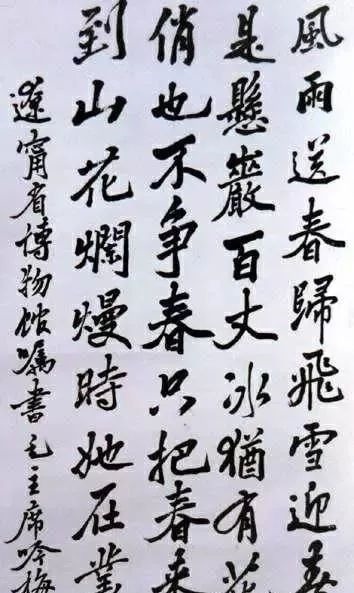 風雨送春歸飛雪迎春
是懸巖百丈冰猶有花
俏也不争春只把春來
到山花爛熳時她在叢
遼甯省博物館囑書毛主席吟梅